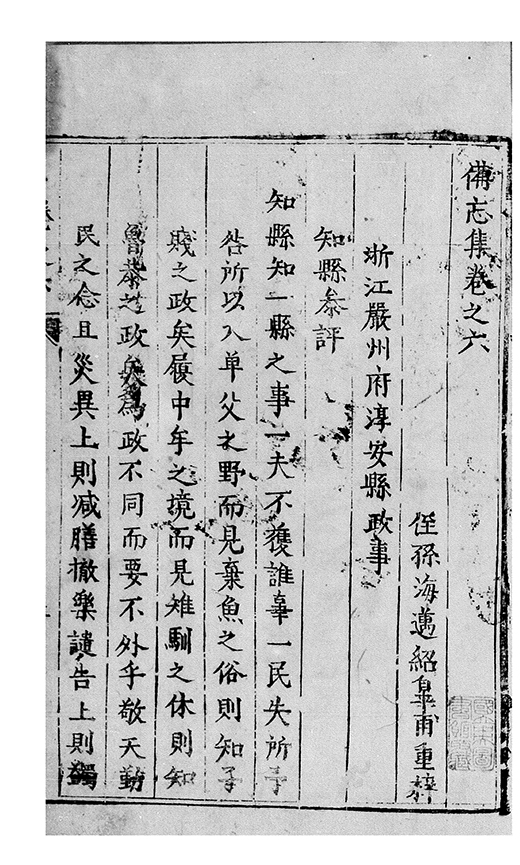 備忘集卷之六
侄孫海邁紹臯甫重梓
浙江嚴州府淳安縣政事
知縣叅評
知縣知一縣之事一夫不獲誰辜一民失所予
咎所以入单父之野而見棄魚之俗則知子
賤之政矣履中牟之境而見雉馴之休則知
魯恭之政矣爲政不同而要不外乎敬天勤
民之念且災異上則减膳撤樂譴告上則蠲